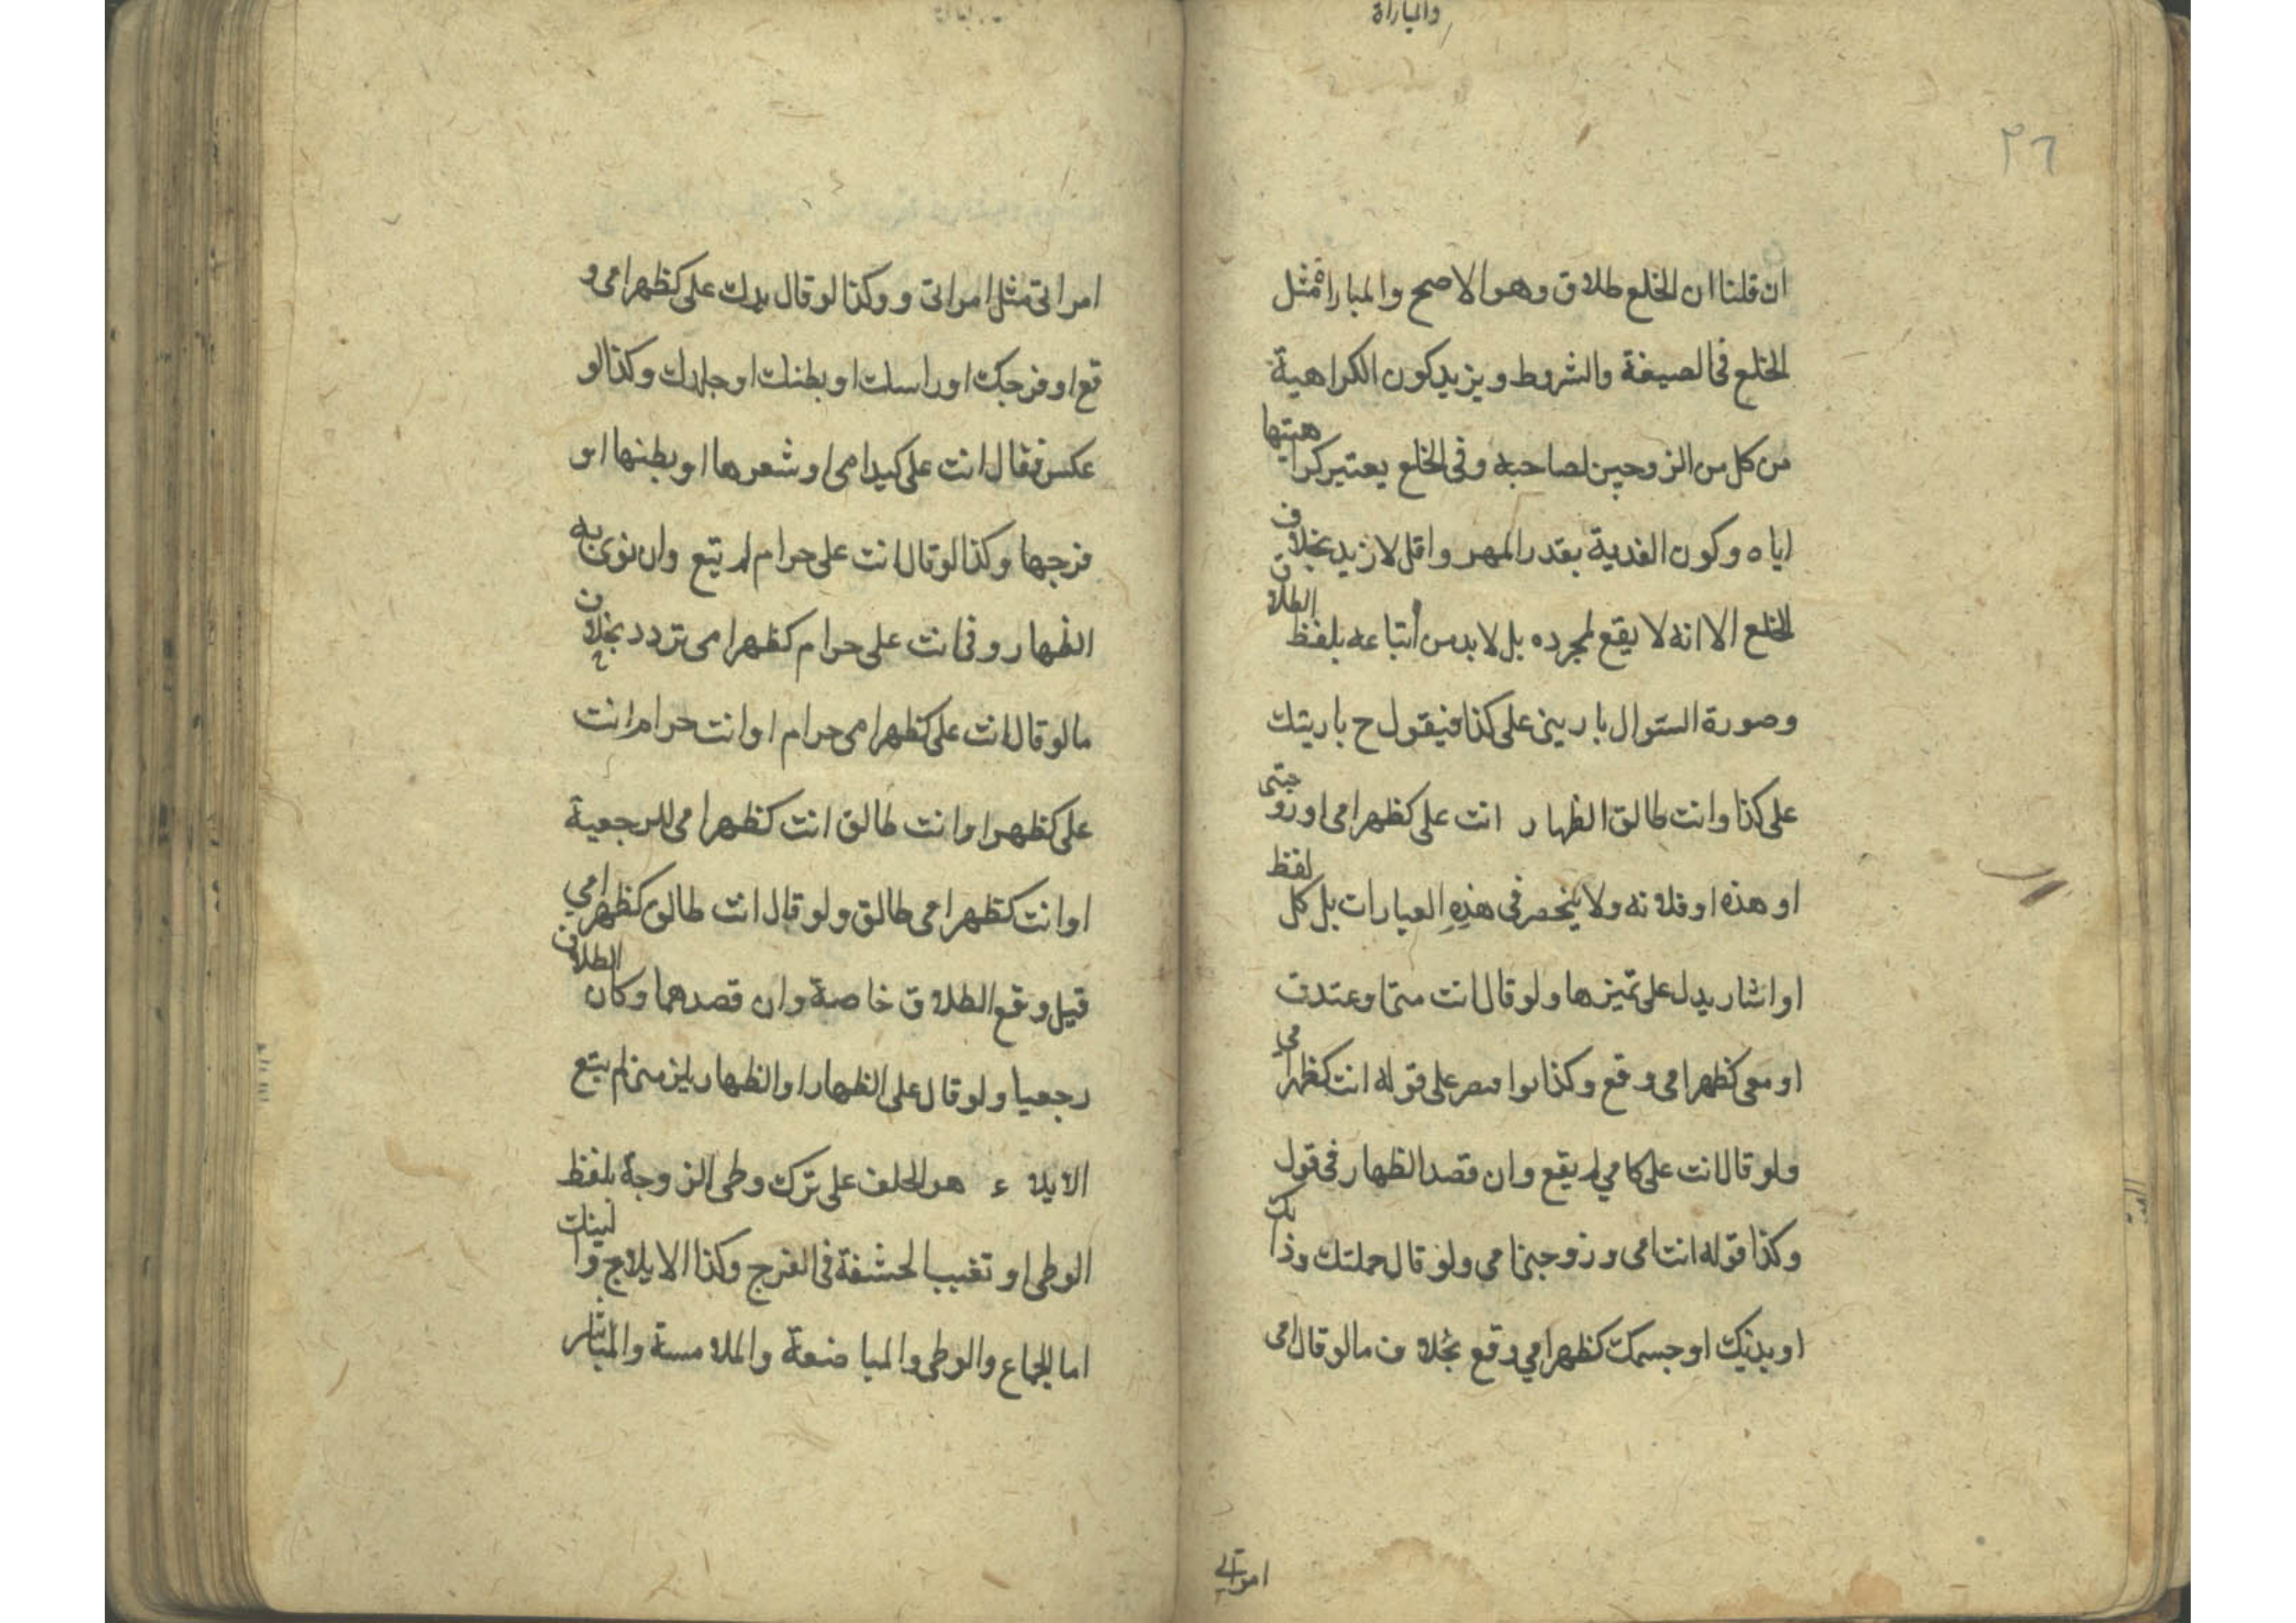 والمباراة
٣٦
ان قلنا ان الخلع طلاق وهو الاصح والمباراة مثل
الخلع فى الصيغة والشروط ويزيد كون الكراهية
من كل من الزوجين لصاحبه وفى الخلع يعتبر كراهيتها
اياه وكون الفدية بقدر المهر واقل لا ازيد بخلاف
الخلع الا انه لا يقع بمجرده بل لا بد من اتباعه بلفظ الطلاق
وصورة السئوال بارينى على كذا فيقول ح باريتك
على كذا وانت طالق الظهار انت على كظهر امى او زوجتى
او هذه او فلانه ولا ينحصر فى هذه العبارات بل كل لفظ
او اشار يدل على تميزها ولو قال انت منى او عندى
او معى كظهر امى وقع وكذا لو اقتصر على قوله انت كظهر امى
ولو قال انت على كامي لم يقع وان قصد الظهار فى قول
وكذا قوله انت امى وزوجتى امي ولو قال جملتك وذاتك
او بدنك او جسمك كظهر امي وقع بخلاف ما لو قال امى
امراتي
امراتى مثل امراتى و وكذا لو قال يدك على كظهر امى و
قع او فرجك او راسك او بطنك او جلدك وكذا لو
عكس فقال انت على كيد امى او شعرها او بطنها او
فرجها وكذا لو قال انت على حرام لم يقع وان نوى به
الظهار وفى انت على حرام كظهر امى تردد بخلاف
ما لو قال انت على كظهر امى حرام او انت حرام انت
على كظهر او انت طالق انت كظهر امى للرجعية
او انت كظهر امى طالق ولو قال انت طالق كظهر امي
قيل وقع الطلاق خاصة وان قصدهما وكان الطلاق
رجعيا ولو قال على الظهار او الظهار يلزمنى لم يقع
الايلاء هو الحلف على ترك وطى الزوجة بلفظ
الوطى او تغيب الحشفة فى الفرج وكذا الايلاج و النيك
اما الجماع والوطى والمباضعة والملامسة والمباشر